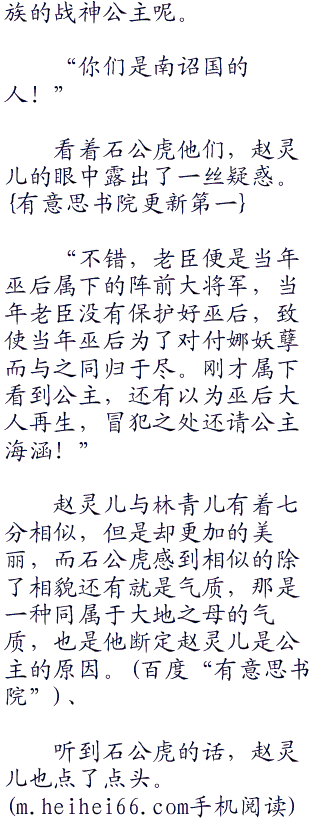 族的战神公主呢。
“你们是南诏国的
人！”
看着石公虎他们，赵灵
儿的眼中露出了一丝疑惑。
{有意思书院更新第一}
“不错，老臣便是当年
巫后属下的阵前大将军，当
年老臣没有保护好巫后，致
使当年巫后为了对付娜妖孽
而与之同归于尽。刚才属下
看到公主，还有以为巫后大
人再生，冒犯之处还请公主
海涵！”
赵灵儿与林青儿有着七
分相似，但是却更加的美
丽，而石公虎感到相似的除
了相貌还有就是气质，那是
一种同属于大地之母的气
质，也是他断定赵灵儿是公
主的原因。(百度“有意思书
院”)、
听到石公虎的话，赵灵
儿也点了点头。
(m.heihei66.com手机阅读)